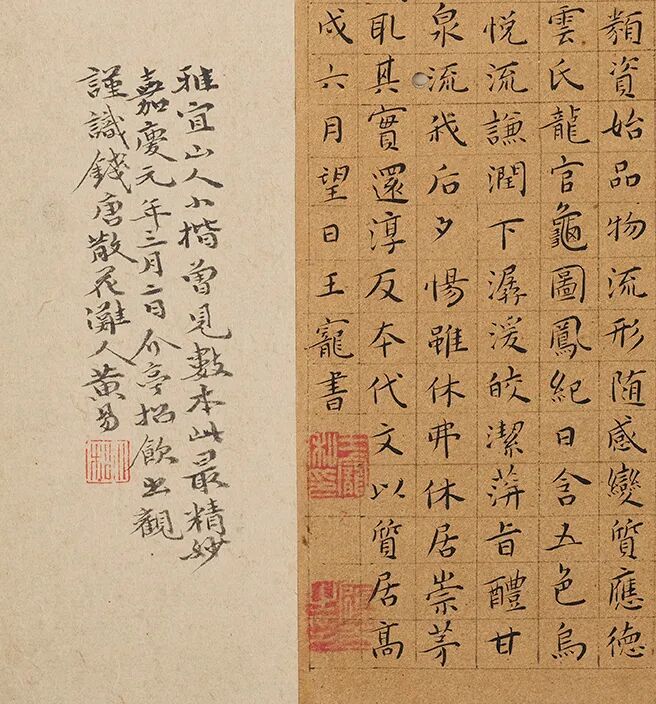 類資始品物流形随感變質應德
雲氏龍官龜圖鳳紀日含五色烏
悦流謙潤下潺湲皎潔蓱旨醴甘
泉流我后夕惕雖休弗休居崇茅
取其實還淳反本代文以質居髙
戌六月望日王寵書
雅宜山人小楷曾見數本此最精妙
嘉慶元年三月二日介亭招飲出觀
謹識錢唐散花灘人黃易
小松